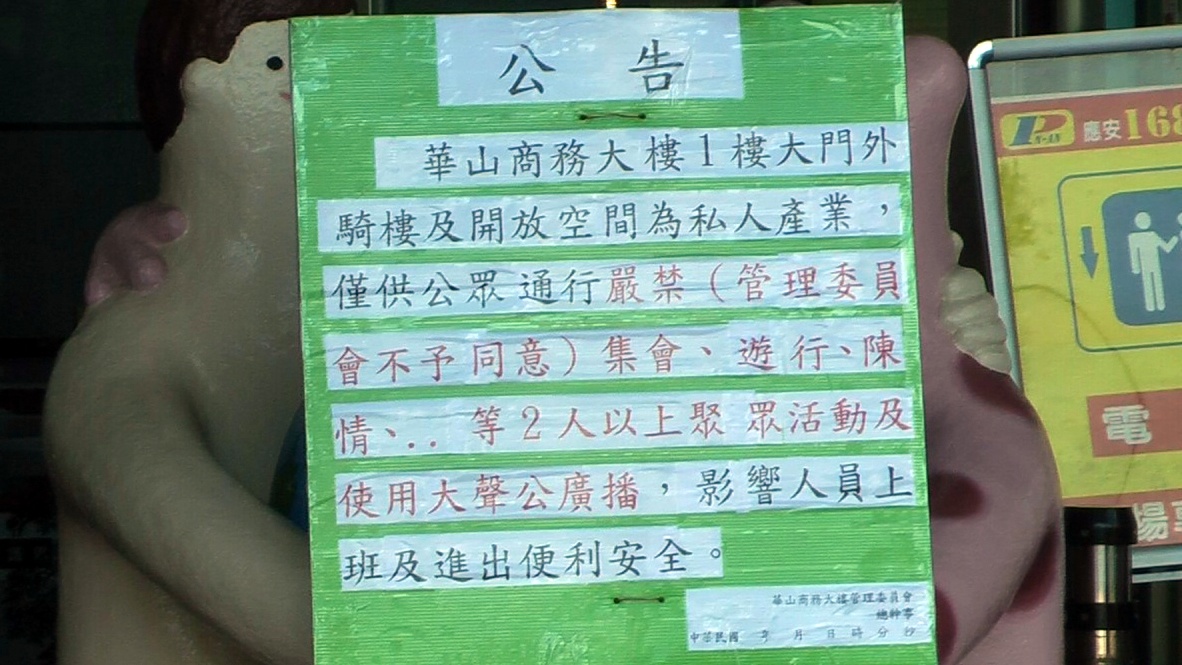 公 告
華山商務大樓1樓大門外
騎樓及開放空間為私人產業，
僅供公眾通行嚴禁（管理委員
會不予同意）集會、遊行、陳
情、.. 等2人以上聚 眾活動及
使用大聲公廣播，影響人員上
班及進出便利安全。
華山商務大樓管理委員會
總幹事
中華民國 年 月 日 時 分 秒
應安168
電
場